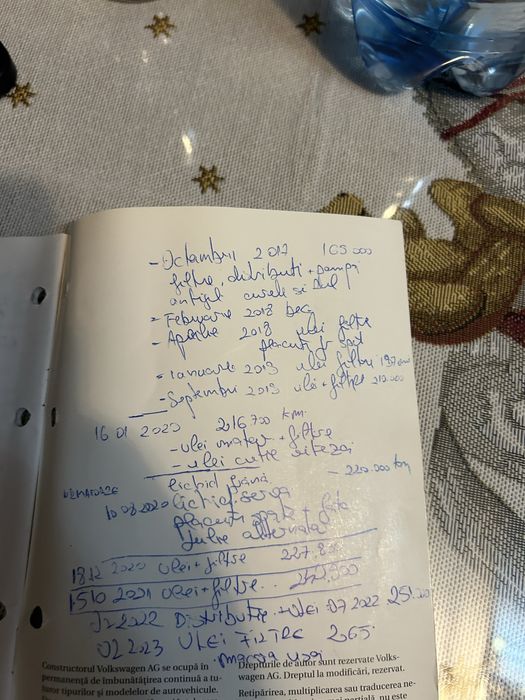 - Octombrii 2017 165.000
filtre, distributi + pompi
antigel curele si
- Februarie 2018
- Aprilie 2018 ulei filtre
placuti f spat
- Ianuarie 2019 ulei filtru 197
- Septembri 2019 ulei + filtre 212.000
16 01 2020 216700 km.
- ulei motor + filtre
- ulei cutie vitezai
- 220.000 km
lichid frînă
10 08 2020
placuti spate + fata
alternator
18 12 2020 ulei + filtre 227.8
15 10 2021 ulei + filtre. 242.500
2022 Distributie + ulei 07 2022 251.
02 2023 ULEI FILTRE 265
macara usi
Constructorul Volkswagen AG se ocupă în
permanență de îmbunătățirea continuă a tu-
turor tipurilor și modelelor de autovehicule.
Drepturile de autor sunt rezervate Volks-
wagen AG. Dreptul la modificări, rezervat.
Retipărirea, multiplicarea sau traducerea ne-